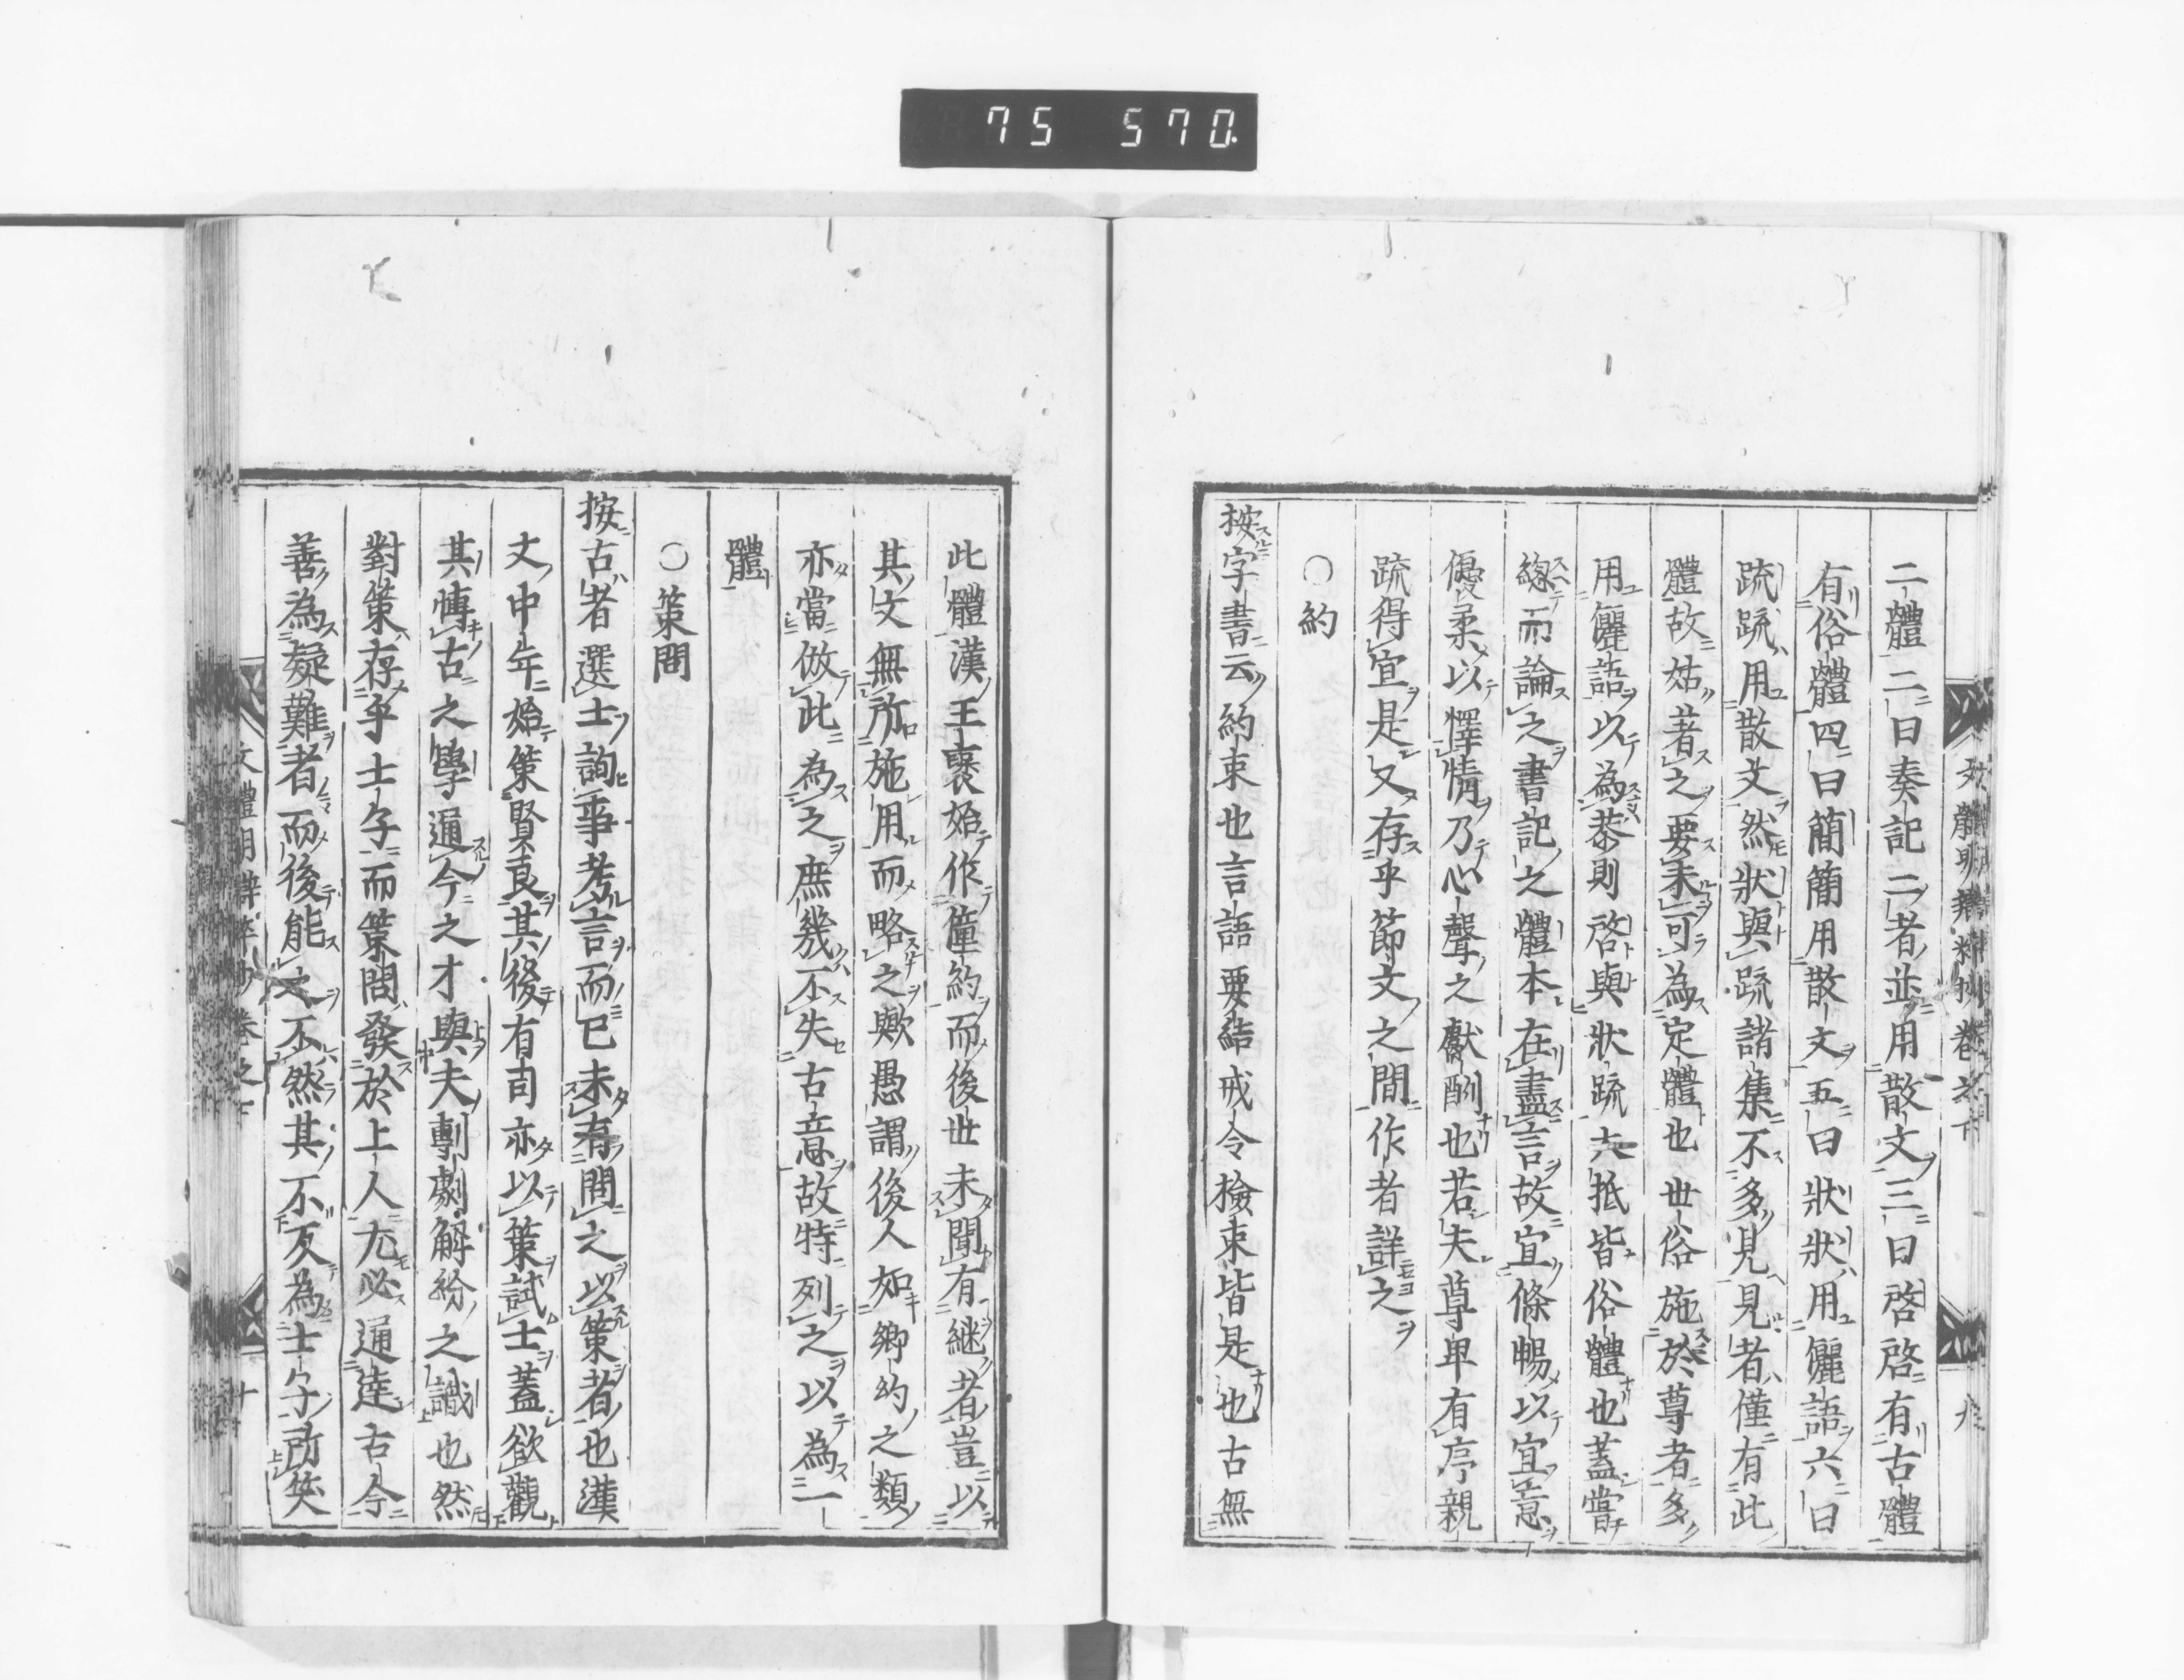 75 570.
文體明辯粹抄 卷之下 九
二體二曰奏記二者並用散文三曰啓啓有古體
有俗體四曰簡簡用散文五曰狀狀用儷語六曰
疏疏用散文然狀與疏諸集不多見見者僅有此
體故姑著之要未可為定體也世俗施於尊者多
用儷語以為恭則啓與狀疏大抵皆俗體也蓋嘗
緫而論之書記之體本在盡言故宜條暢以宣意
優柔以懌情乃心聲之獻酬也若夫尊卑有序親
疏得宜是又存乎節文之間作者詳之
○約
按字書云約束也言語要結戒令檢束皆是也古無
此體漢王襃始作僮約而後世未聞有継者豈以
其文無所施用而略之歟愚謂後人如鄉約之類
亦當倣此為之庶幾不失古意故特列之以為一
體
○策問
按古者選士詢事考言而已未有問之以策者也漢
文中年始策賢良其後有司亦以策試士蓋欲觀
其博古之學通今之才與夫剸劇解紛之識也然
對策存乎士子而策問發於上人尤必通達古今
善為疑難者而後能之不然其不反為士子所笑
文體明辯粹抄 卷之下 十